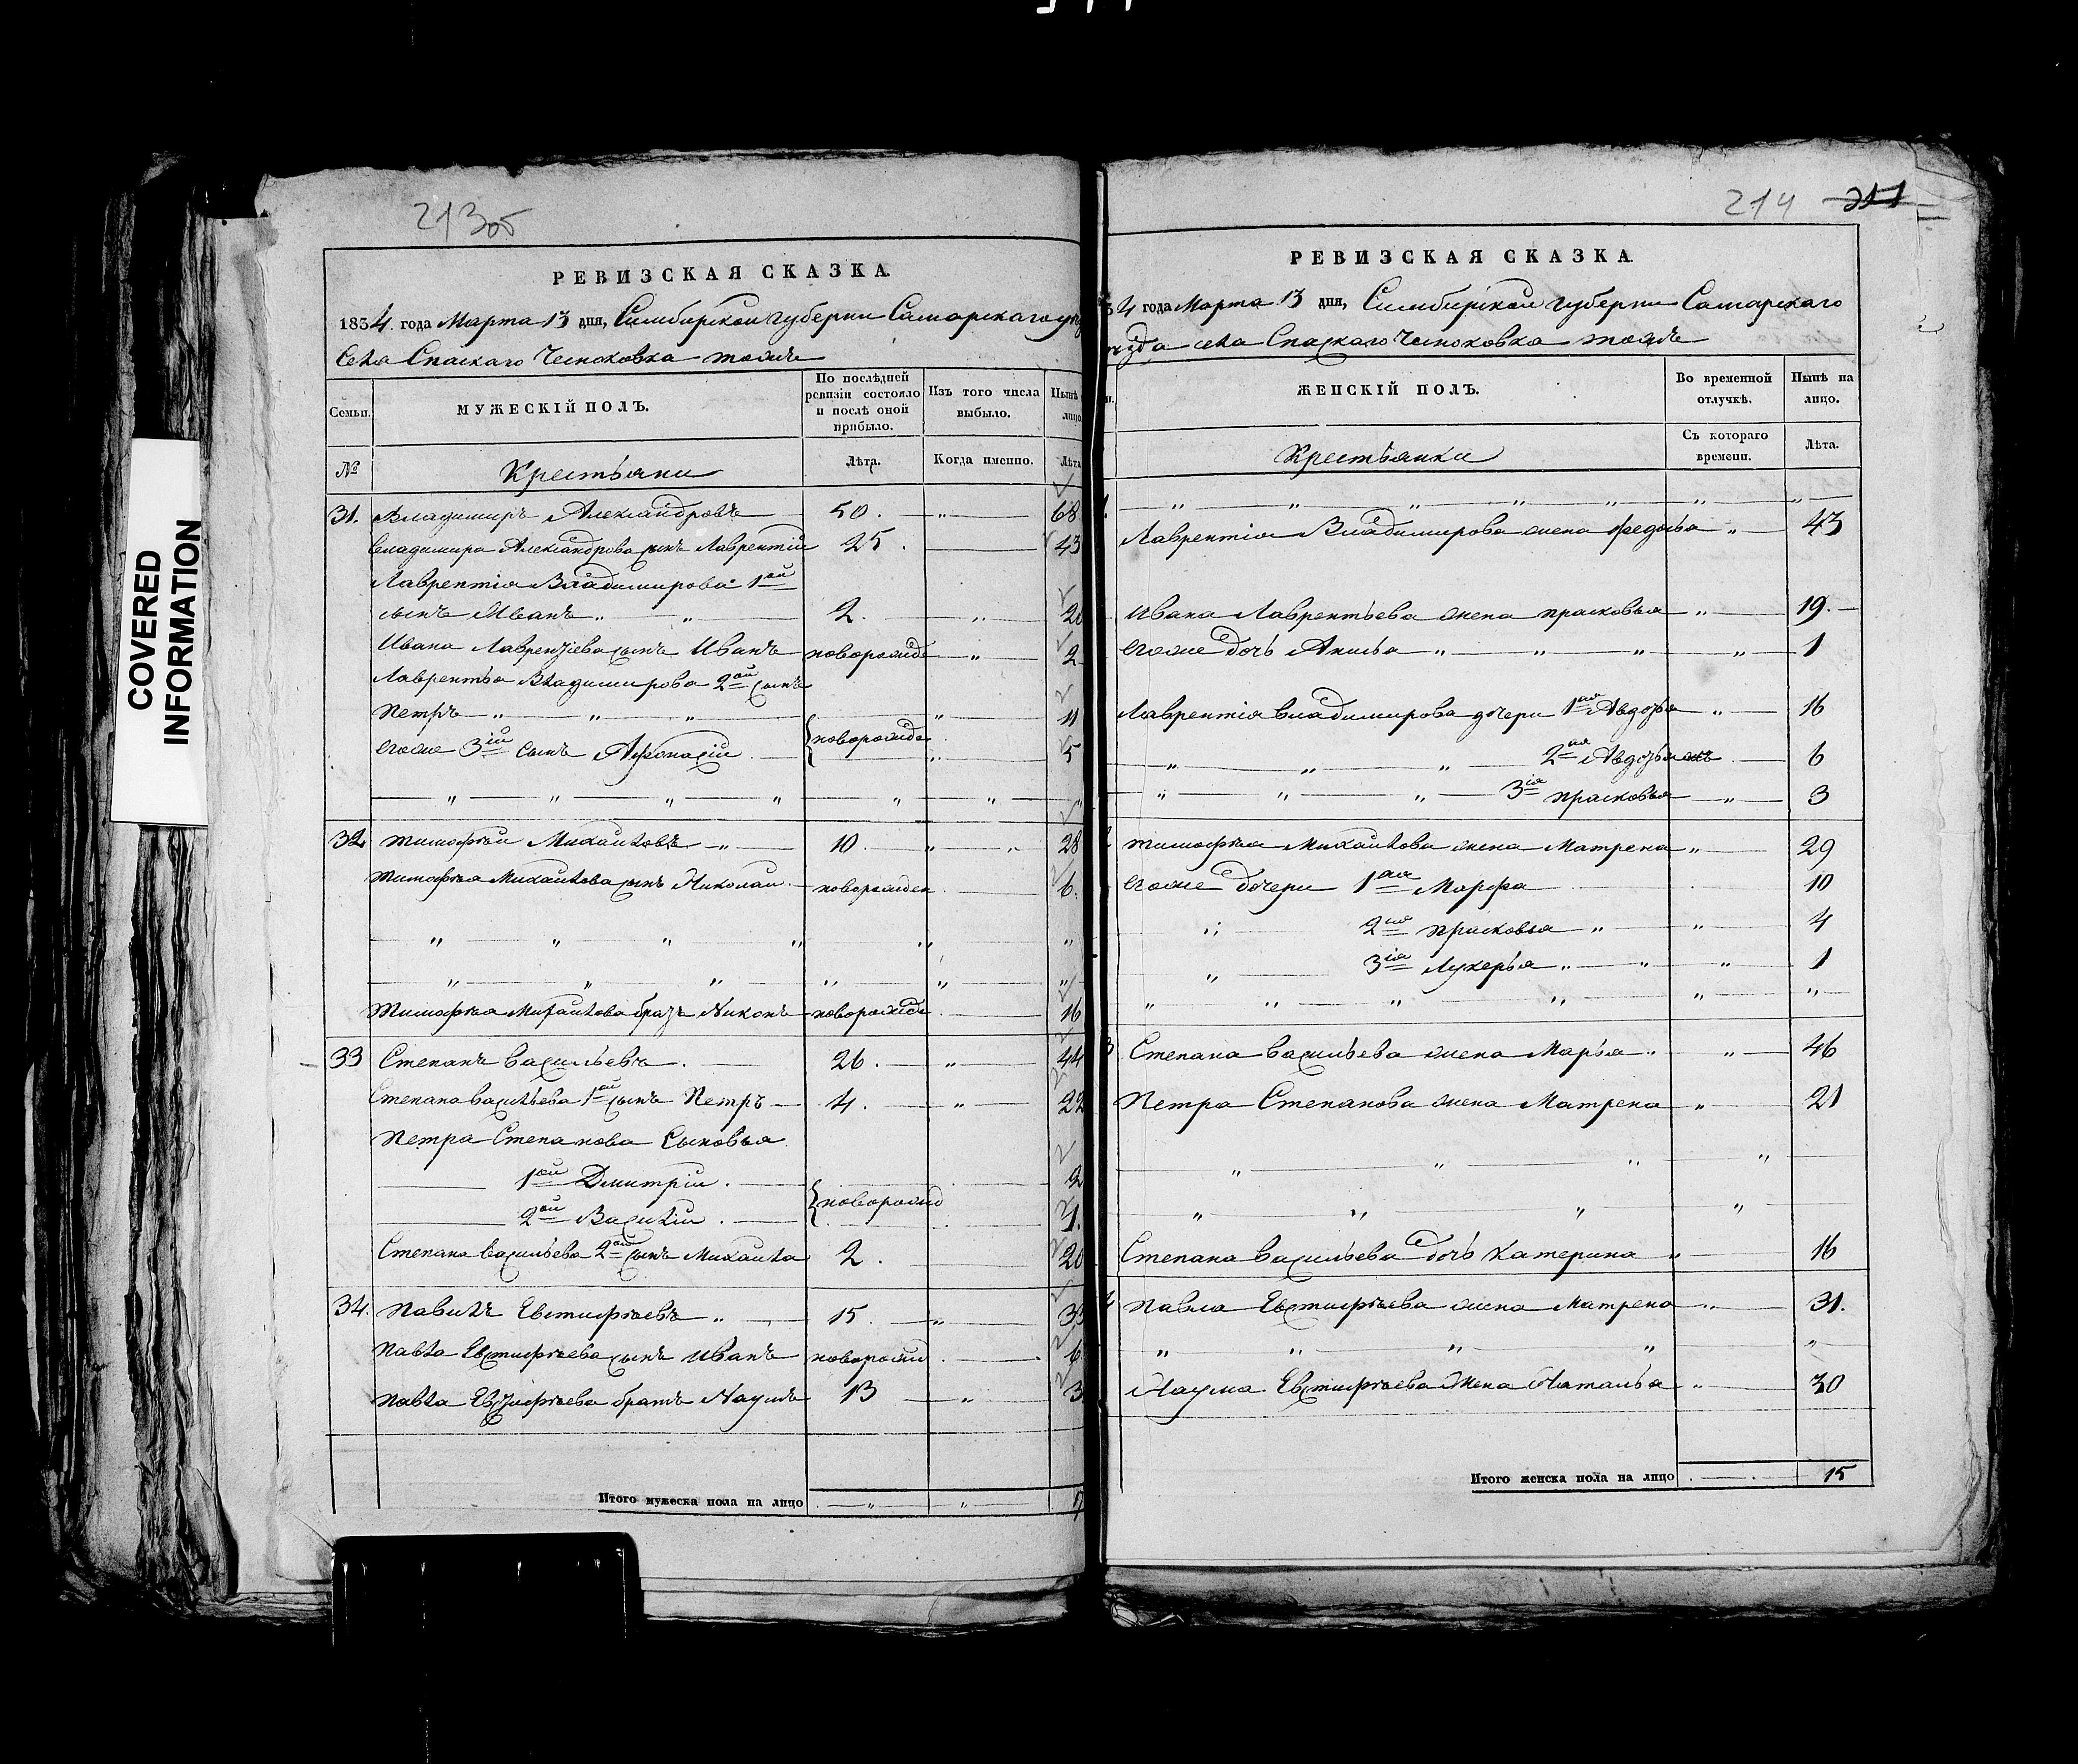 COVERED
INFORMATION
213об
РЕВИЗСКАЯ СКАЗКА.
1834. года Марта 13 дня, Симбирской губернии Самарскаго
Села Спаскаго Чесноковка тожъ
Семьи.
МУЖЕСКІЙ ПОЛЪ.
По послѣдней
ревизіи состояло
и послѣ оной
прибыло.
Изъ того числа
выбыло.
Нынѣ
лицо
№
Крестьяни
Лѣта.
Когда именно.
Лѣта
31. Владимиръ Александровъ 50. „ 68
Владимира Александрова сынъ Лаврентій 25. 43
Лаврентія Владимирова 1ой
сынъ Иванъ „ „ 2. „ 20
Ивана Лаврентіева сынъ Иванъ новорожде „ 2
Лаврентья Владимирова 2ой сынъ
Петръ „ „ „ „ 11
новорожде
егоже 3ій сынъ Афонасій „ 5
„ „ „ „ „ „ „
32 Тимофѣй Михайловъ „ 10. „ „ 28
Тимофѣя Михайлова сынъ Николай новорожден 6.
„ „ „ „ „ „
„ „ „ „ „ „
Тимофѣя Михайлова братъ Никонъ новорожде 16
33 Степанъ Васильевъ. 26. „ 44
Степана Васильева 1ой сынъ Петръ 4. „ 22
Петра Степанова Сыновья
1ой Дмитрій. 2
новорожд
2ой Василій. 1.
Степана Васильева 2ой сынъ Михайла 2. 20
34. Павилъ Евстифѣевъ „ 15. „ 33
Павла Евстифѣева сынъ Иванъ новорожд 6
Павла Евстифѣева братъ Наумъ 13 „ 3
Итого мужеска пола на лицо „ „
214 211
РЕВИЗСКАЯ СКАЗКА.
34 года Марта 13 дня, Симбирской губернии Самарскаго
уѣзда села Спаскаго Чесноковка тожъ
ЖЕНСКІЙ ПОЛЪ.
Во временной
отлучкѣ.
Нынѣ на
лицо.
Крестьянки
Съ котораго
времени.
Лѣта.
„ „ „ „ „ „ „
Лаврентія Владимирова жена Федосья „ 43
Ивана Лаврентьева жена прасковья „ 19.
егоже дочь Анисья „ „ „ „ 1
Лаврентія Владимирова дочери 1ая Авдотья „ 16
„ „ „ 2ая Авдотья 6
„ „ „ 3ія прасковья „ 3
Тимофѣя Михайлова жена Матрена „ 29
егоже дочери 1ая Марфа 10
„ 2ая прасковья „ „ 4
„ 3ія Лукерья „ „ „ 1
„ „ „ „ „ „
Степана Васильева жена Марья „ „ 46
Петра Степанова жена Матрена „ 21
„ „ „ „
„ „ „ „
Степана Васильева дочь Катерина „ 16
Павла Евстифѣева жена Матрена „ 31.
„ „ „ „ „
Наума Евстифѣева Жена Наталья „ 30
Итого женска пола на лицо 15